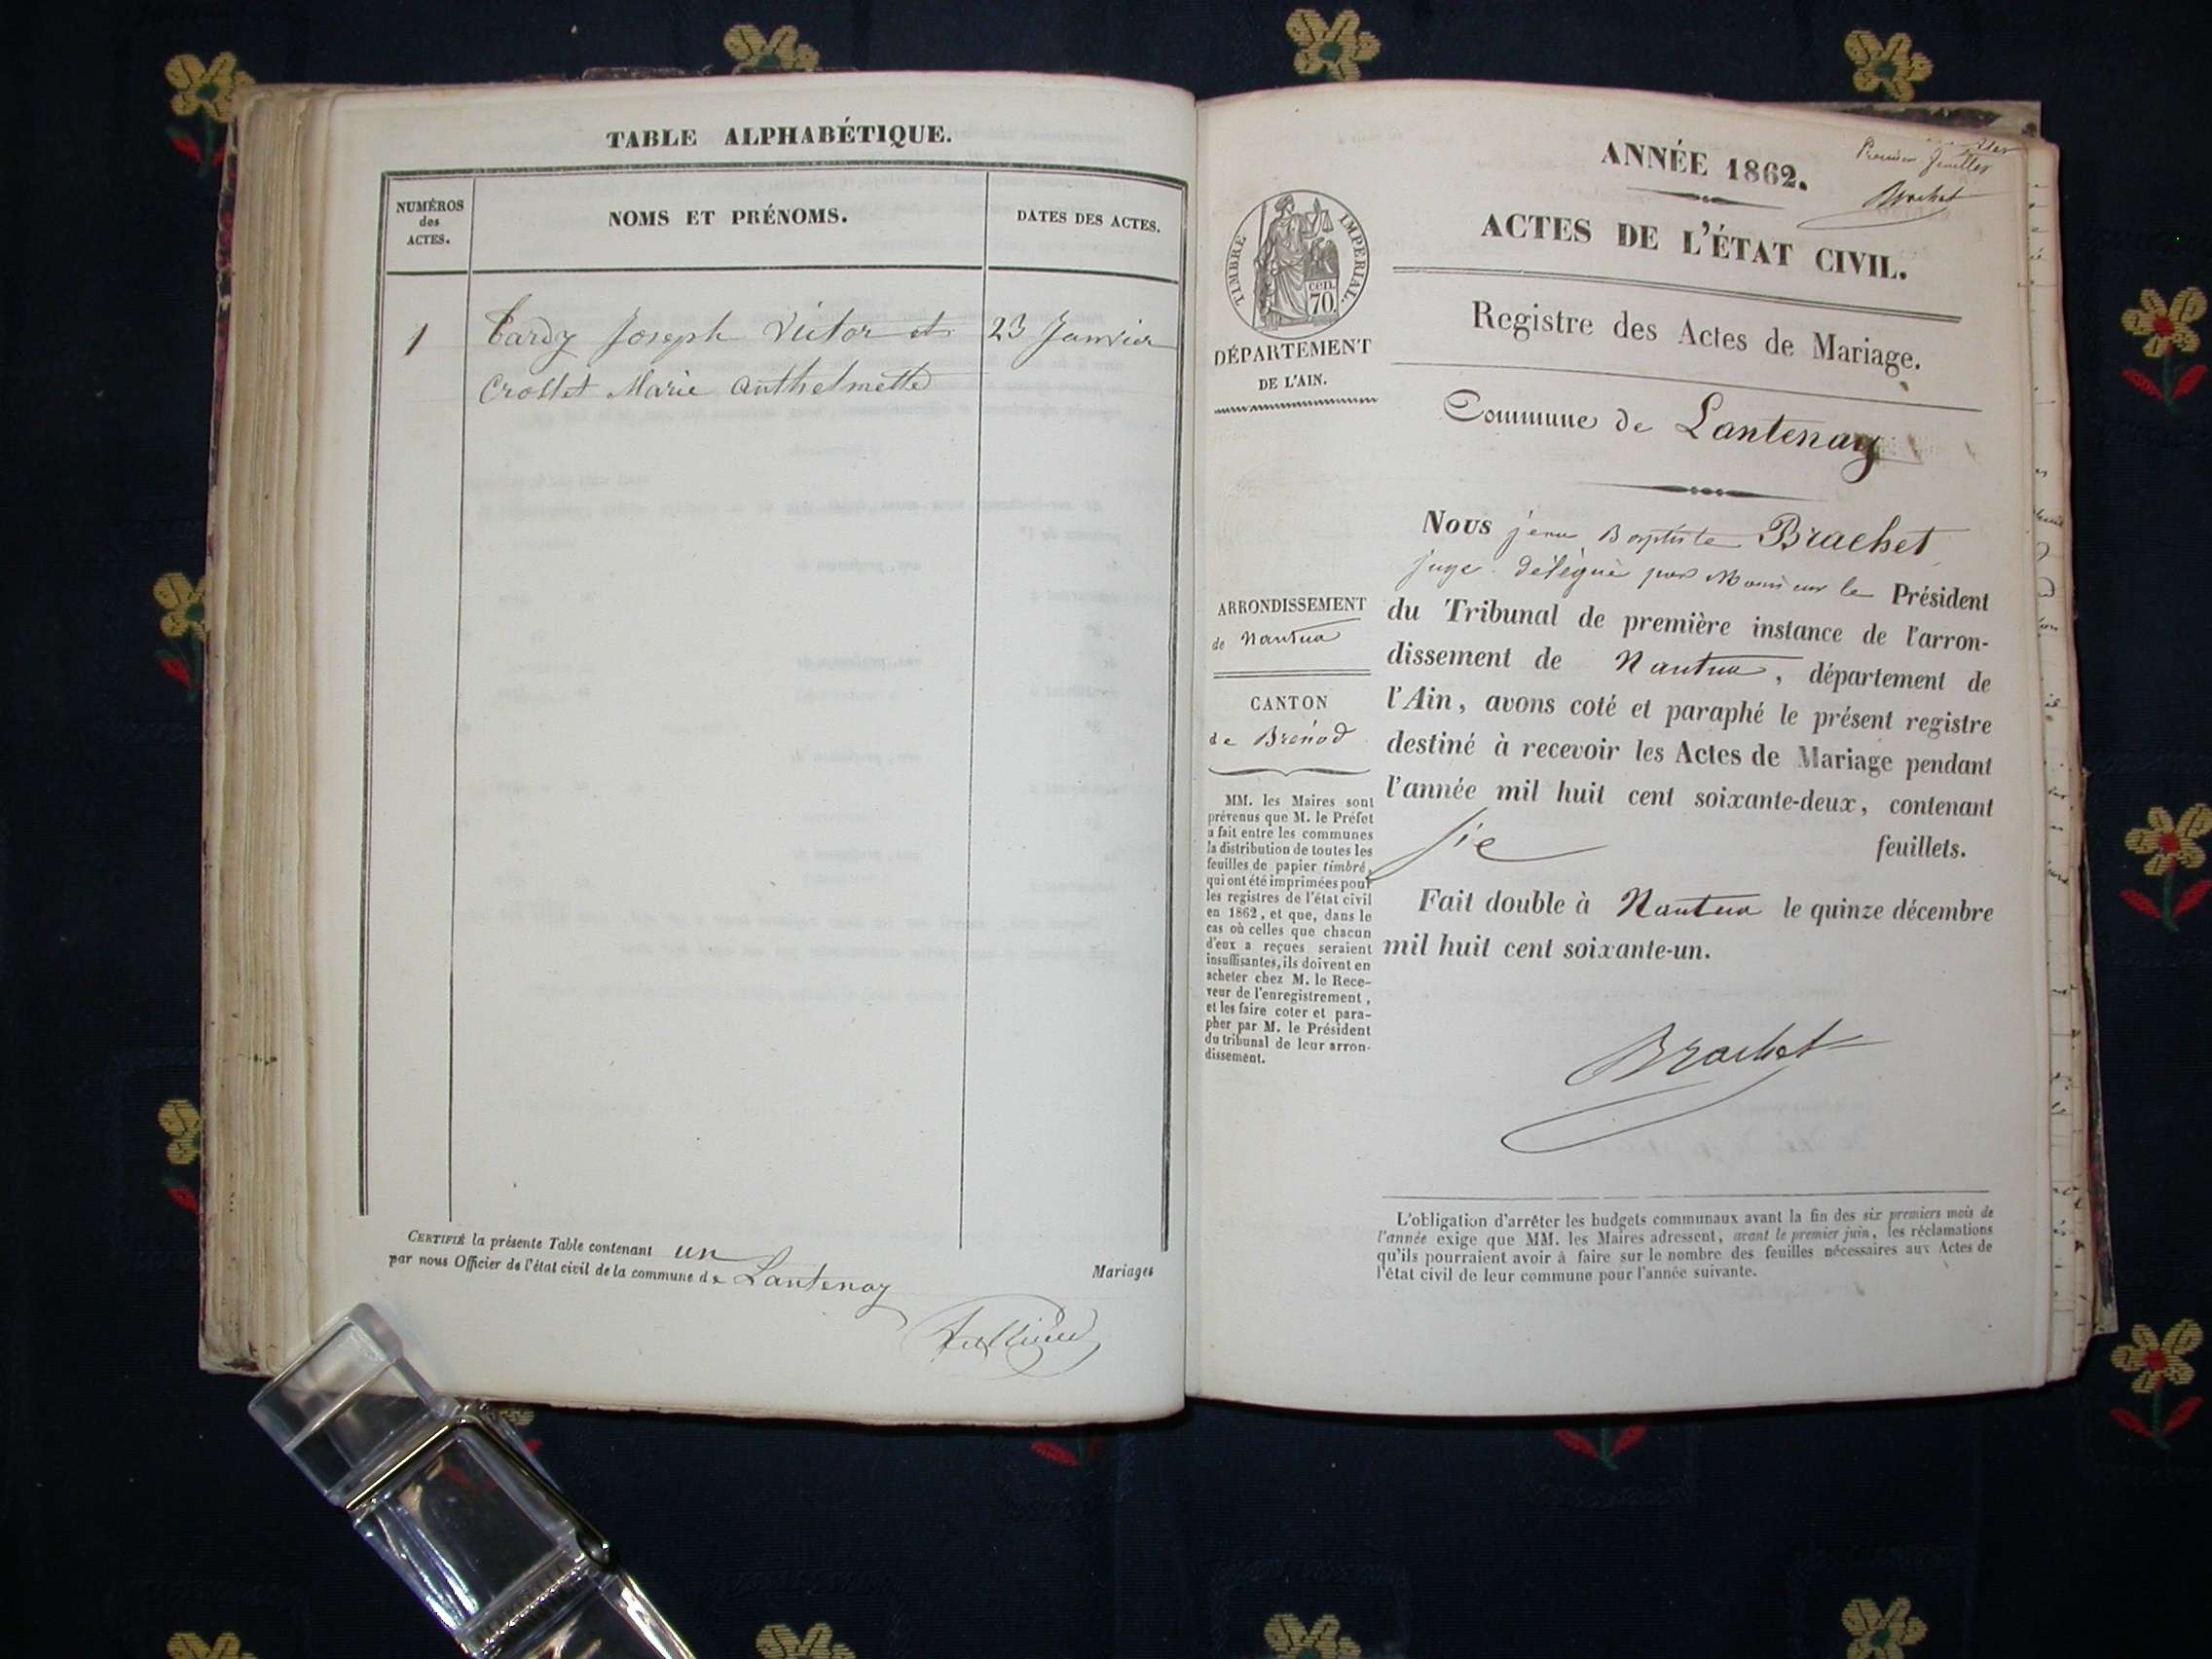 TABLE ALPHABÉTIQUE.
NUMÉROS
des
ACTES.
NOMS ET PRÉNOMS.
DATES DES ACTES.
1
Tardy Joseph Victor et
23 Janvier
Crollet Marie Anthelmette
CERTIFIÉ la présente Table contenant un
Mariages
par nous Officier de l'état civil de la commune de Lantenay
Premier feuillet
Brachet
ANNÉE 1862.
ACTES DE L'ÉTAT CIVIL.
Registre des Actes de Mariage.
TIMBRE IMPÉRIAL.
cen.
70.
DÉPARTEMENT
DE L'AIN.
Commune de Lantenay
ARRONDISSEMENT
de Nantua
CANTON
de Brénod
MM. les Maires sont
prévenus que M. le Préfet
a fait entre les communes
la distribution de toutes les
feuilles de papier timbré,
qui ont été imprimées pour
les registres de l'état civil
en 1862, et que, dans le
cas où celles que chacun
d'eux a reçues seraient
insuffisantes, ils doivent en
acheter chez M. le Rece-
veur de l'enregistrement,
et les faire coter et para-
pher par M. le Président
du tribunal de leur arron-
dissement.
Nous jean Baptiste Brachet,
juge délégué par Monsieur le Président
du Tribunal de première instance de l'arron-
dissement de Nantua, département de
l'Ain, avons coté et paraphé le présent registre
destiné à recevoir les Actes de Mariage pendant
l'année mil huit cent soixante-deux, contenant
feuillets.
Fait double à Nantua le quinze décembre
mil huit cent soixante-un.
Brachet
L'obligation d'arrêter les budgets communaux avant la fin des six premiers mois de
l'année exige que MM. les Maires adressent, avant le premier juin, les réclamations
qu'ils pourraient avoir à faire sur le nombre des feuilles nécessaires aux Actes de
l'état civil de leur commune pour l'année suivante.